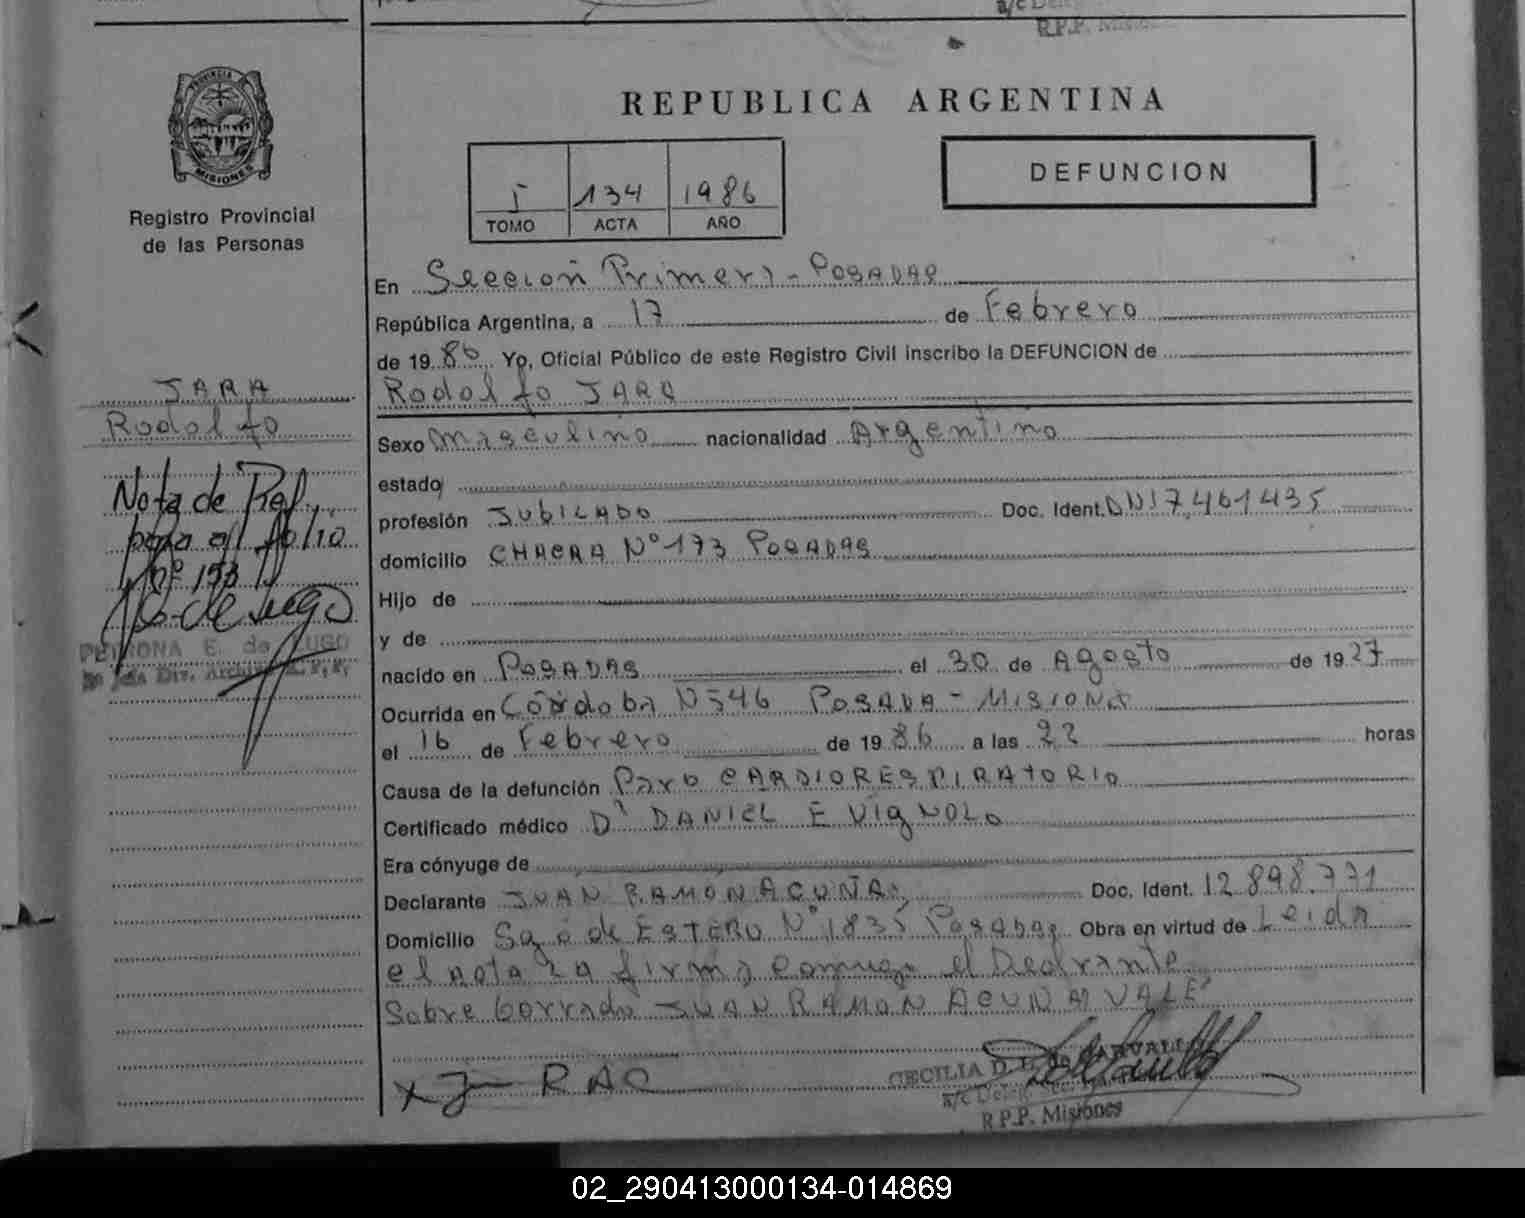 R.P.P. Misiones
PROVINCIA
MISIONES
Registro Provincial
de las Personas
REPUBLICA ARGENTINA
I 134 1986
TOMO ACTA AÑO
DEFUNCION
En Sección Primera - POSADAS
República Argentina, a 17 de Febrero
de 1986 Yo, Oficial Público de este Registro Civil inscribo la DEFUNCION de
Rodolfo JARA
JARA
Rodolfo
Nota de Ref.
folio
nº 193
PETRONA E. de LUGO
Sexo masculino nacionalidad Argentino
estado
profesión JUBILADO Doc. Ident. DNI 7.461.435
domicilio CHACRA Nº 173 POSADAS
Hijo de
y de
nacido en POSADAS el 30 de Agosto de 1927
Ocurrida en Córdoba N 546 POSADA - MISIONES
el 16 de Febrero de 1986 a las 22 horas
Causa de la defunción Paro CARDIORESPIRATORIO
Certificado médico Dr DANIEL E VigNOLO
Era cónyuge de
Declarante JUAN RAMON ACUÑA Doc. Ident. 12.898.771
Domicilio Sgo de ESTERO Nº 1835 POSADAS Obra en virtud de Leida
el acta la firma conmigo el Declrante
Sobre borrado JUAN RAMON ACUNA VALE
x J RAC
CECILIA D. L. de CARVALLO
a/c Deleg.
R.P.P. Misiones
02_290413000134-014869